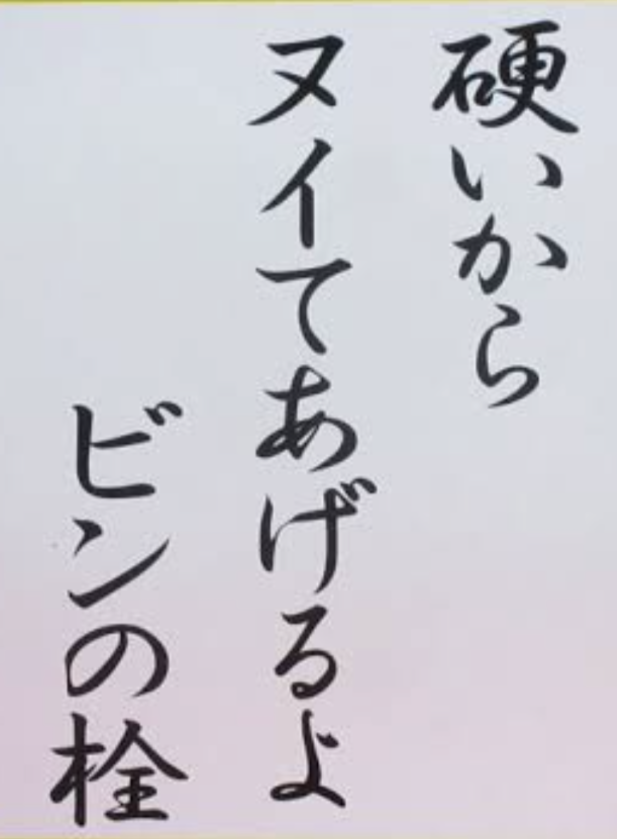 硬いから
ヌイてあげるよ
ビンの栓